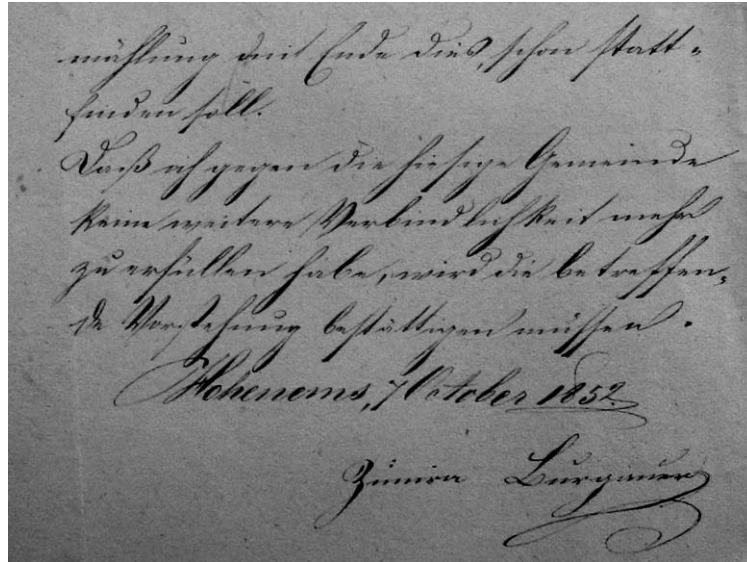 mählung mit Ende dies, schon statt-
finden soll.
Daß ich gegen die hiesige Gemeinde
keine weitere Verbindlichkeit mehr
zu erfüllen habe, wird die betreffen-
de Vorstehung bestättigen müssen.
Hohenems, 7 October 1852
Burgauer